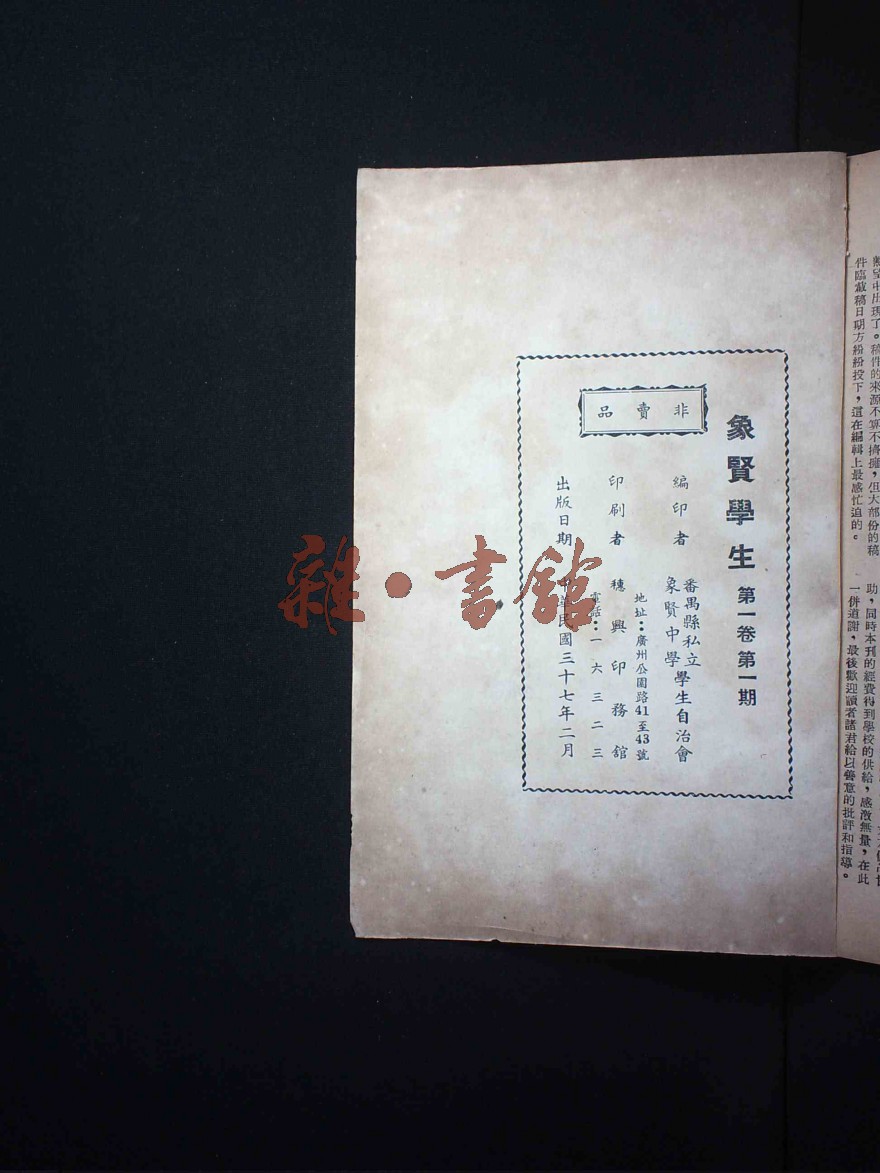 件臨截稿日期方紛紛投下，這在編輯上最感忙迫的。
助，同時本刊的經費得到學校的供給，感激無量，在此
一併道謝，最後歡迎讀者諸君給以善意的批評和指導。
象賢學生 第一卷第一期
非賣品
編印者 番禺縣私立象賢中學學生自治會
印刷者 穗興印務館
地址：廣州公園路41至43號
電話：一六三二三
出版日期 中華民國三十七年二月
雜·書館